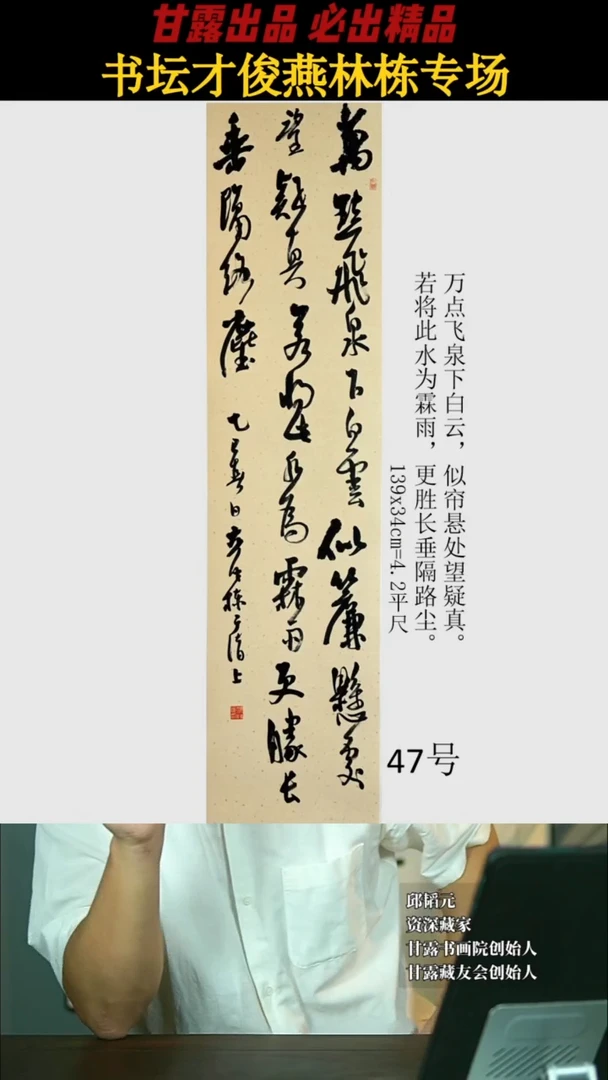 甘露出品 必出精品
书坛才俊燕林栋专场
萬點飛泉下白雲似簾懸處
望疑真若將此水為霖雨更勝长
垂隔路塵 乙巳春日
万点飞泉下白云，似帘悬处望疑真。
若将此水为霖雨，更胜长垂隔路尘。
139x34cm=4.2平尺
47号
邱韬元
资深藏家
甘露书画院创始人
甘露藏友会创始人